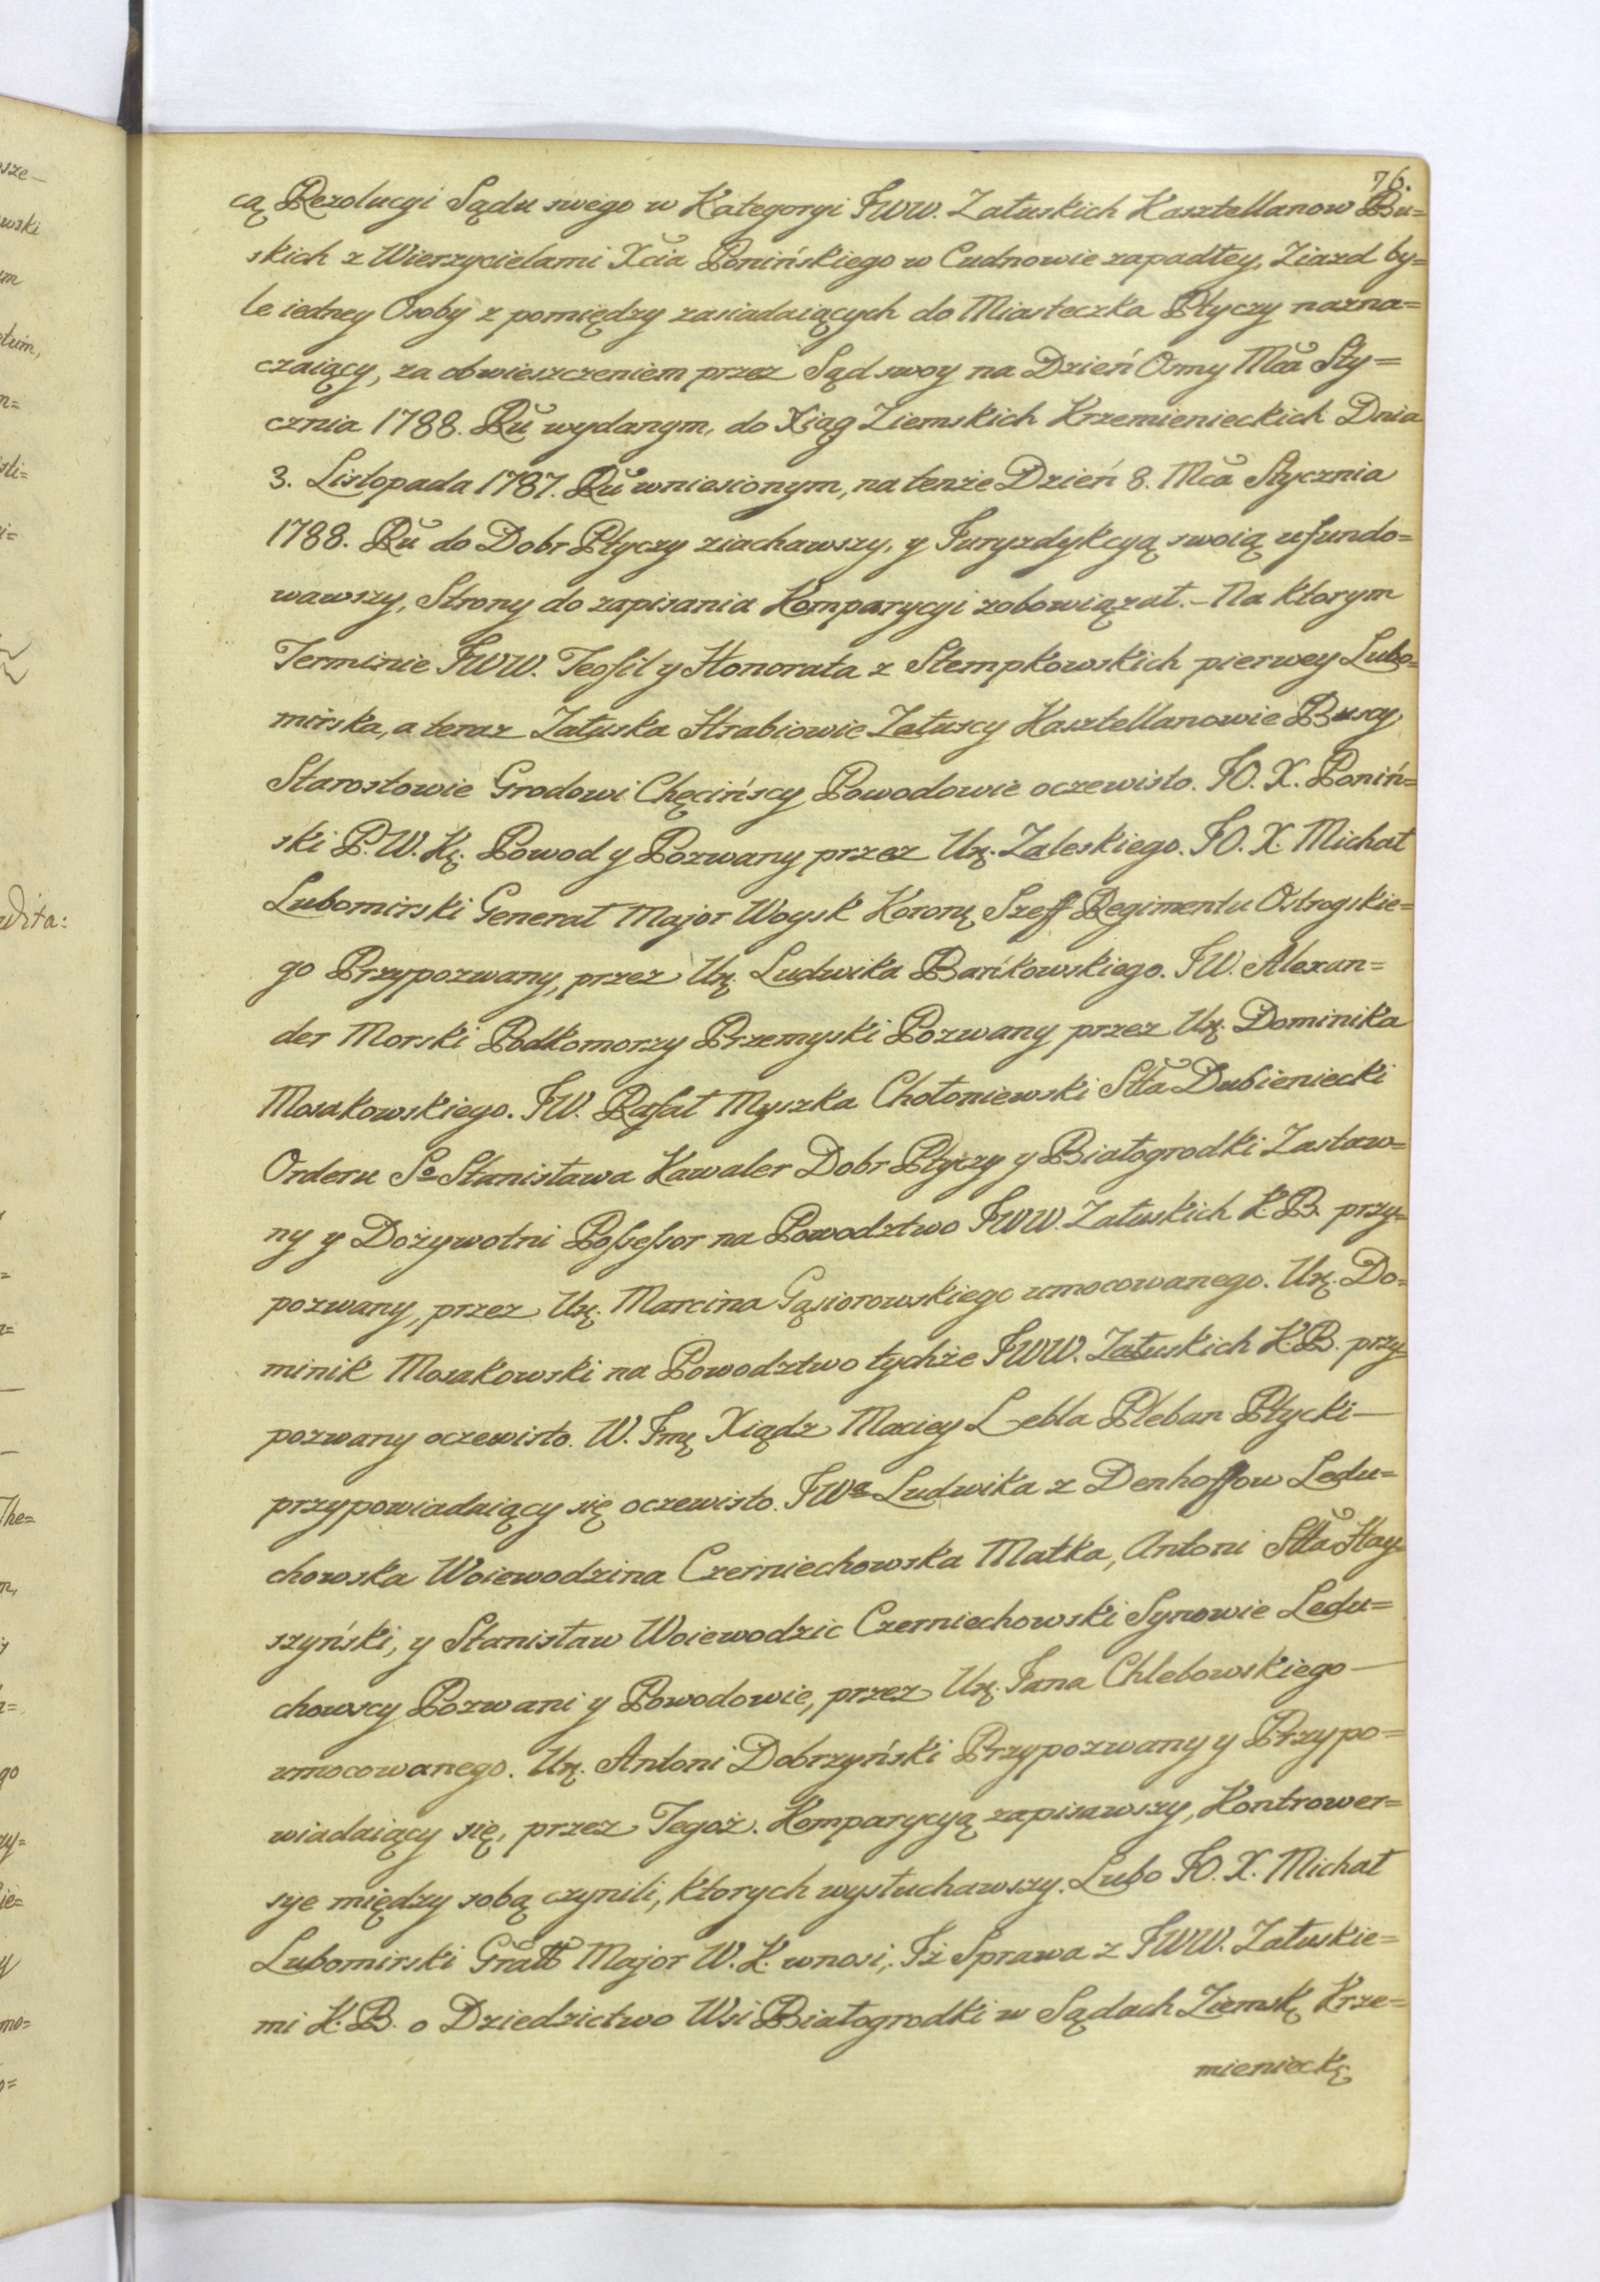 76.
cą Rezolucyi Sądu swego w Kategoryi JWW. Załuskich Kasztellanow Bu=
skich z Wierzycielami Xcia Ponińskiego w Cudnowie zapadłey, Ziazd by=
le iedney Osoby z pomiędzy zasiadaiących do Miasteczka Ptyczy nazna=
czaiący, za obwieszczeniem przez Sąd swoy na Dzień Osmy Mca Sty=
cznia 1788. Ru wydanym, do Xiąg Ziemskich Krzemienieckich Dnia
3. Listopada 1787. Ru wniesionym, na tenże Dzień 8. Mca Stycznia
1788. Ru do Dobr Ptyczy ziachawszy, y Juryzdykcyą swoią ufundo=
wawszy, Strony do zapisania Komparycyi zobowiązał. – Na ktorym
Terminie JWW. Teofil y Honorata z Stempkowskich pierwey Lubo=
mirska, a teraz Załuska Hrabiowie Załuscy Kasztellanowie Buscy
Starostowie Grodowi Chęcińscy Powodowie oczewisto. JO. X. Poniń=
ski P. W. Kę. Powod y Pozwany przez Urę. Zaleskiego. JO. X. Michał
Lubomirski Generał Major Woysk Koronę Szeff Regimentu Ostrogskie=
go Przypozwany, przez Urę. Ludwika Bańkowskiego. JW. Alexan=
der Morski Podkomorzy Przemyski Pozwany przez Urę. Dominika
Mosakowskiego. JW. Rafał Myszka Chołoniewski Stta Dubieniecki
Orderu So Stanisława Kawaler Dobr Ptyczy y Białogrodki Zastaw=
ny y Dożywotni Possessor na Powodztwo JWW. Załuskich K. B. przy=
pozwany, przez Urę. Marcina Gąsiorowskiego umocowanego. Urę. Do=
minik Mosakowski na Powodztwo tychże JWW. Załuskich K. B. przy
pozwany oczewisto. W. Jmę Xiądz Maciey Lebla Pleban Ptycki —
przypowiadaiący się oczewisto. JWa Ludwika z Denhoffow Ledu=
chowska Woiewodzina Czerniechowska Matka, Antoni Stta Hay=
szyński, y Stanisław Woiewodzic Czerniechowski Synowie Ledu=
chowscy Pozwani y Powodowie, przez Urę. Jana Chlebowskiego —
umocowanego. Urę. Antoni Dobrzyński Przypozwany y Przypo=
wiadaiący się, przez Tegoż. Komparycyą zapisawszy, Kontrower=
sye między sobą czynili, ktorych wysłuchawszy. Lubo JO. X. Michał
Lubomirski Grałł Major W. K. wnosi, Iż Sprawa z JWW. Załuskie=
mi K. B. o Dziedzictwo Wsi Białogrodki w Sądach Ziemskę Krze=
mienieckę